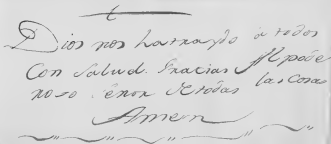 Dios nos ha traydo a todos
Con Salud. Gracias Al pode
roso Señor de todas las Cosas
Amen